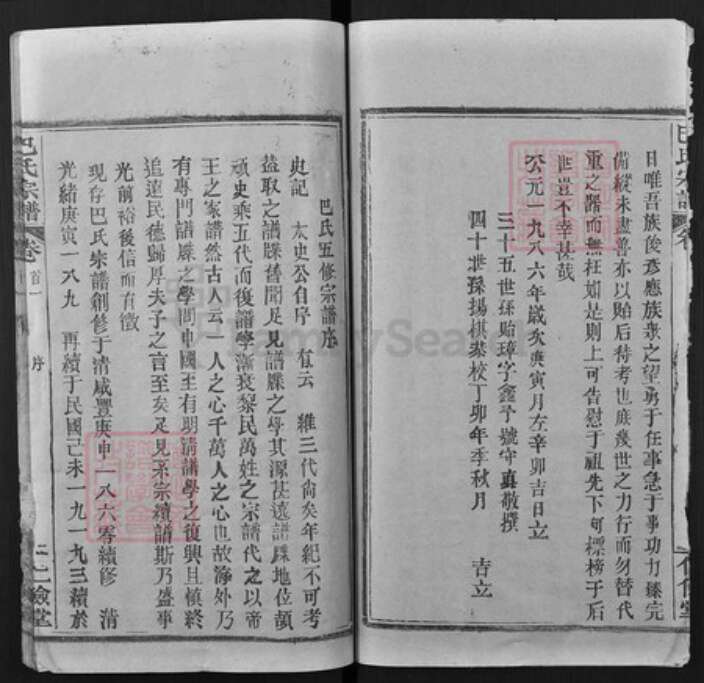 日唯吾族後彥應族衆之望勇于任事急于事功力臻完
備縱未盡善亦以貽后待考也庶幾世之力行而勿替代
重之器而無枉如是則上可告慰于祖先下可標榜于后
世豈不幸甚哉
公元一九八六年歲次庚寅月左辛卯吉日立
三十五世孫貽璋字鑫予號守真敬撰
四十世孫揚棋恭校丁卯年季秋月 吉立
巴氏五修宗譜序
史記 太史公自序 有云 維三代尙矣年紀不可考
蓋取之譜牒舊聞足見譜牒之學其源甚遠譜牒地位頗
頑史乘五代而復譜學漸衰黎民萬姓之宗譜代之以帝
王之家譜然古人云一人之心千萬人之心也故海外乃
有專門譜牒之學問中國至有明清譜學之復興且慎終
追遠民德歸厚夫子之言至矣足見承宗續譜斯乃盛事
光前裕後信而有徵
現存巴氏宗譜創修于清咸豐庚申一八六零續修 清
光緒庚寅一八九 再續于民國己未一九一九三續於
巴氏宗譜 卷首一 序